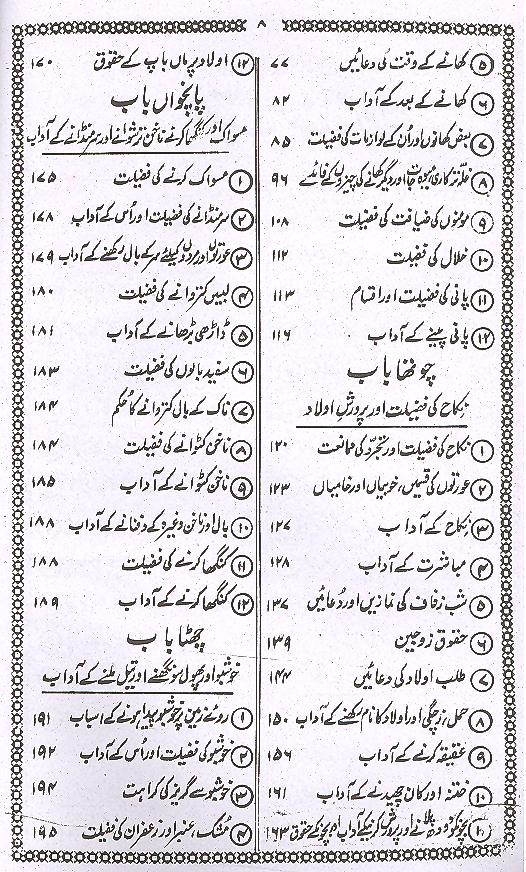 ۸
۵ کھانے کے وقت کی دعائیں ۷۷
۶ کھانے کے بعد کے آداب ۸۲
۷ بعض کھانوں اور اُن کے لوازمات کی فضیلت ۸۵
۸ غلہ ترکاری میوہ جات اور دیگر کھانی کی چیزوں کے فائدے ۹۶
۹ مومنوں کی ضیافت کی فضیلت ۱۰۸
۱۰ خلال کی فضیلت ۱۱۲
۱۱ پانی کی فضیلت اور اقسام ۱۱۳
۱۲ پانی پینے کے آداب ۱۱۶
چوتھا باب
نکاح کی فضیلت اور پرورش اولاد
۱ نکاح کی فضیلت اور تجرّد کی ممانعت ۱۲۰
۲ عورتوں کی قسمیں، خوبیاں اور خامیاں ۱۲۳
۳ نکاح کے آداب ۱۲۷
۴ مباشرت کے آداب ۱۲۸
۵ شب زفاف کی نمازیں اور دُعائیں ۱۳۷
۶ حقوق زوجین ۱۳۹
۷ طلب اولاد کی دعائیں ۱۴۴
۸ حمل، زچگی اور اولاد کا نام رکھنے کے آداب ۱۵۰
۹ عقیقہ کرنے کے آداب ۱۵۶
۱۰ ختنہ اور کان چھیدنے کے آداب ۱۶۱
بچہ کو دودھ پلانے اور پرورش کرنیکے آداب اور بچہ کے حقوق ۱۶۳
۱۲ اولاد پر ماں باپ کے حقوق ۱۷۰
پانچواں باب
مسواک اور کنگھا کرنے ناخن ترشوانے اور سر منڈانے کے آداب
۱ مسواک کرنے کی فضیلت ۱۷۵
۲ سر منڈانے کی فضیلت اور اُس کے آداب ۱۷۸
۳ عورتوں اور مردوں کیلئے سر کے بال رکھنے کے آداب ۱۷۹
۴ لبیں کتروانے کی فضیلت ۱۸۰
۵ ڈاڑھی بڑھانے کے آداب ۱۸۱
۶ سفید بالوں کی فضیلت ۱۸۳
۷ ناک کے بال کتروانے کا حکم ۱۸۴
۸ ناخن کٹوانے کی فضیلت ۱۸۴
۹ ناخن کٹوانے کے آداب ۱۸۵
۱۰ بال اور ناخن وغیرہ کے دفنانے کے آداب ۱۸۸
۱۱ کنگھا کرنے کی فضیلت ۱۸۸
۱۲ کنگھا کرنے کے آداب ۱۸۹
چھٹا باب
خوشبو اور پھول سونگھنے اور تیل ملنے کے آداب
۱ روئے زمین پر خوشبو پیدا ہونے کے اسباب ۱۹۱
۲ خوشبو کی فضیلت اور اُس کے آداب ۱۹۲
۳ خوشبو سے گریز کی کراہت ۱۹۴
۴ مُشک، عنبر اور زعفران کی فضیلت ۱۹۵